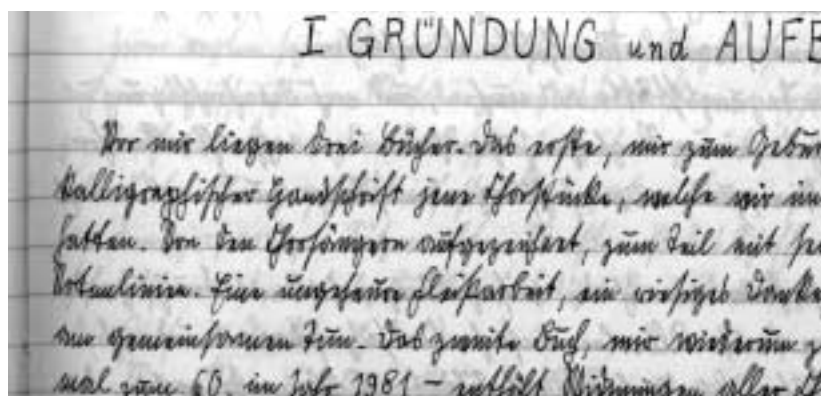 I GRÜNDUNG und AUFB
Vor mir liegen drei Bücher. Das erste, mir zum Gebur
kalligraphischer Handschrift jene Chorstücke, welche wir im
hatten. Von den Chorsängern aufgezeichnet, zum Teil mit se
Notenlinien. Eine ungeheure Fleißarbeit, ein riesiges Danke
am gemeinsamen Tun. Das zweite Buch, mir wiederum z
mal zum 60. im Jahr 1981 – enthält Widmungen aller Ch